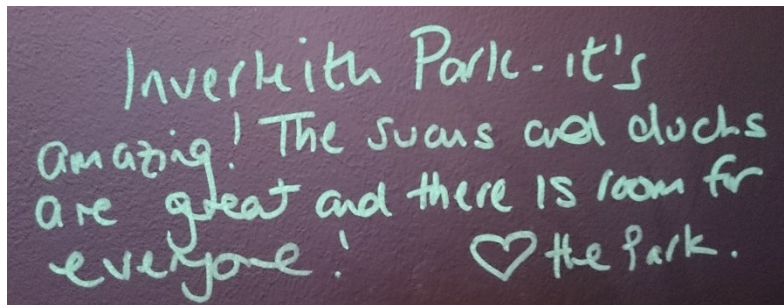 Inverleith Park - it's
amazing! The swans and ducks
are great and there is room for
everyone! ♡ the Park.